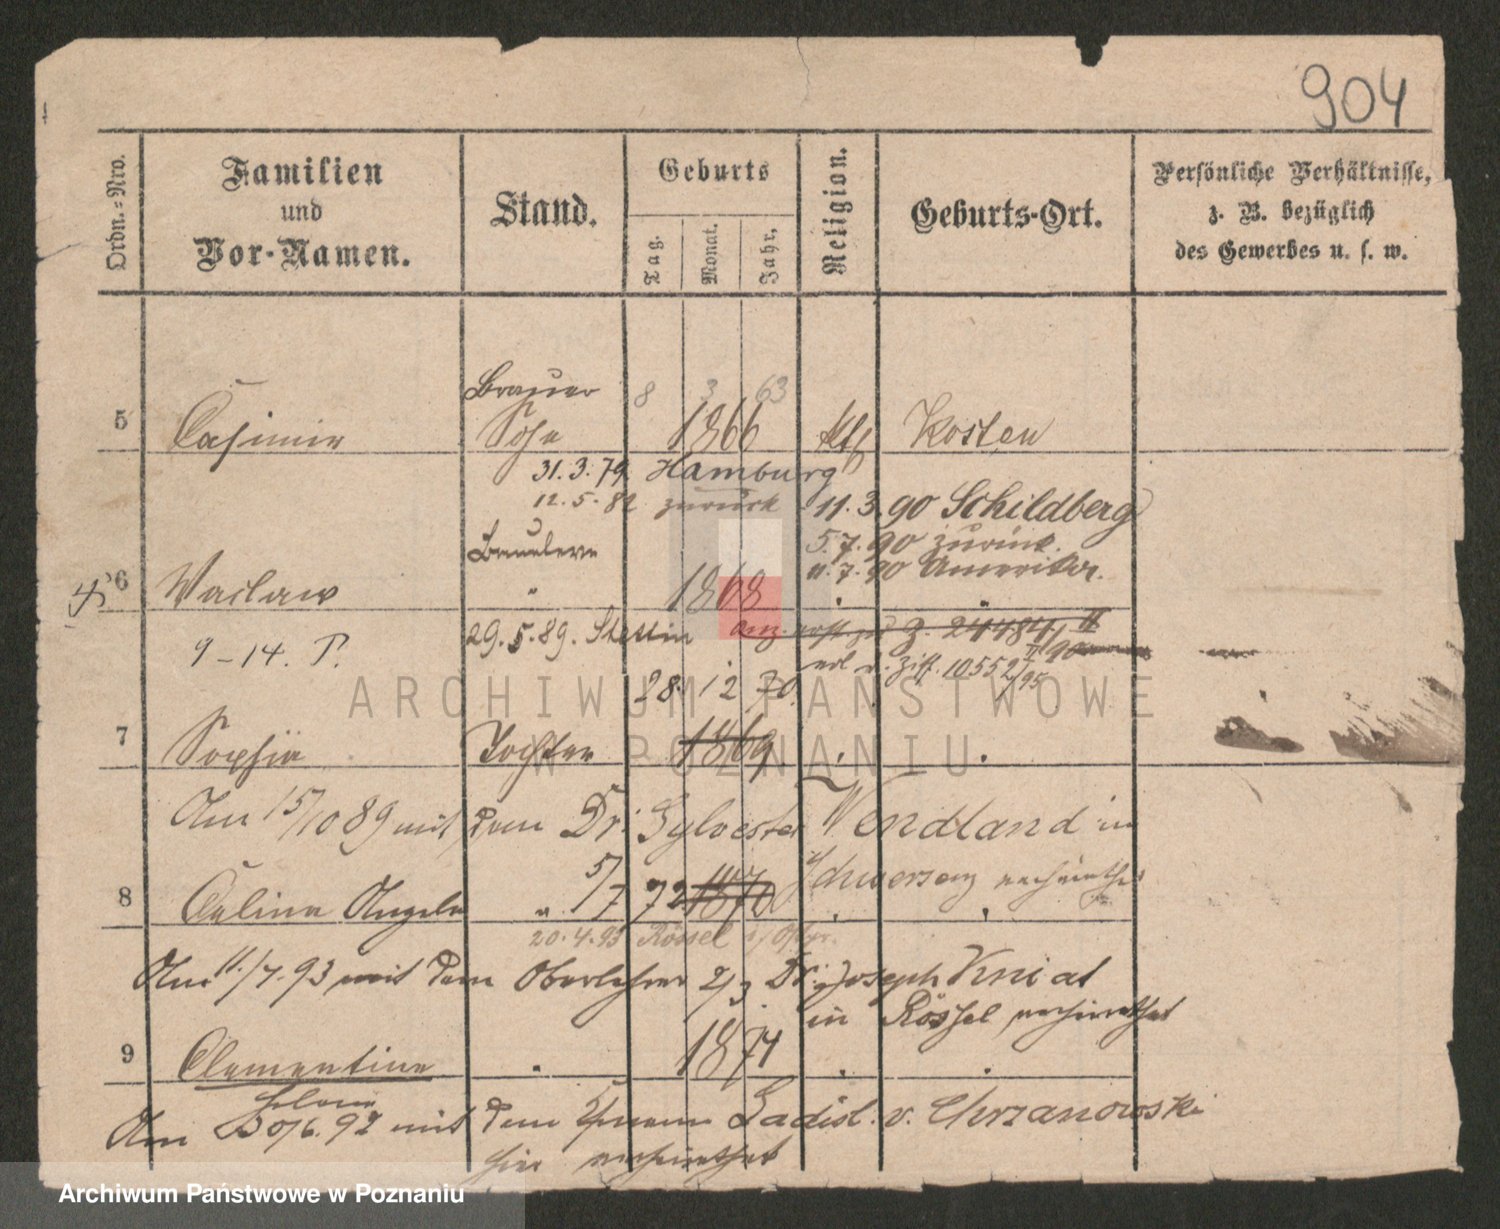 904
Ordn.-Nro.
Familien
und
Vor-Namen.
Stand.
Geburts
Tag.
Monat.
Jahr.
Religion.
Geburts-Ort.
Persönliche Verhältnisse,
z. B. bezüglich
des Gewerbes u. s. w.
Brauer 8 3 63
5 Casimir Sohn 1866 kth Kosten
31.3.79. Hamburg
12.5.82 zurück 11.3.90 Schildberg
5.7.90 zurück.
11.7.90 Amerika.
6 Waclaw " 1868 " "
9-14. P. 29.5.89. Stettin Z. 24484/II 90
v. Ziff. 10552/II 95
28. 12 70.
7 Sophie Tochter 1869 " "
Am 15/10 89 mit dem Dr. Sylvester Wendland in
Schwersenz verheirathet
8 Celina Angela " 5/7 72 1870 " "
20.4.93 Rössel i/Ostpr.
Am 11./7.93 mit dem Oberlehrer Dr. Joseph Kniat
in Rössel verheirathet
9 Clementine " 1874 " "
Helene
Am 30/6.97 mit dem Ladisl. v. Chrzanowski
hier verheirathet
ARCHIWUM PAŃSTWOWE
W POZNANIU
Archiwum Państwowe w Poznaniu